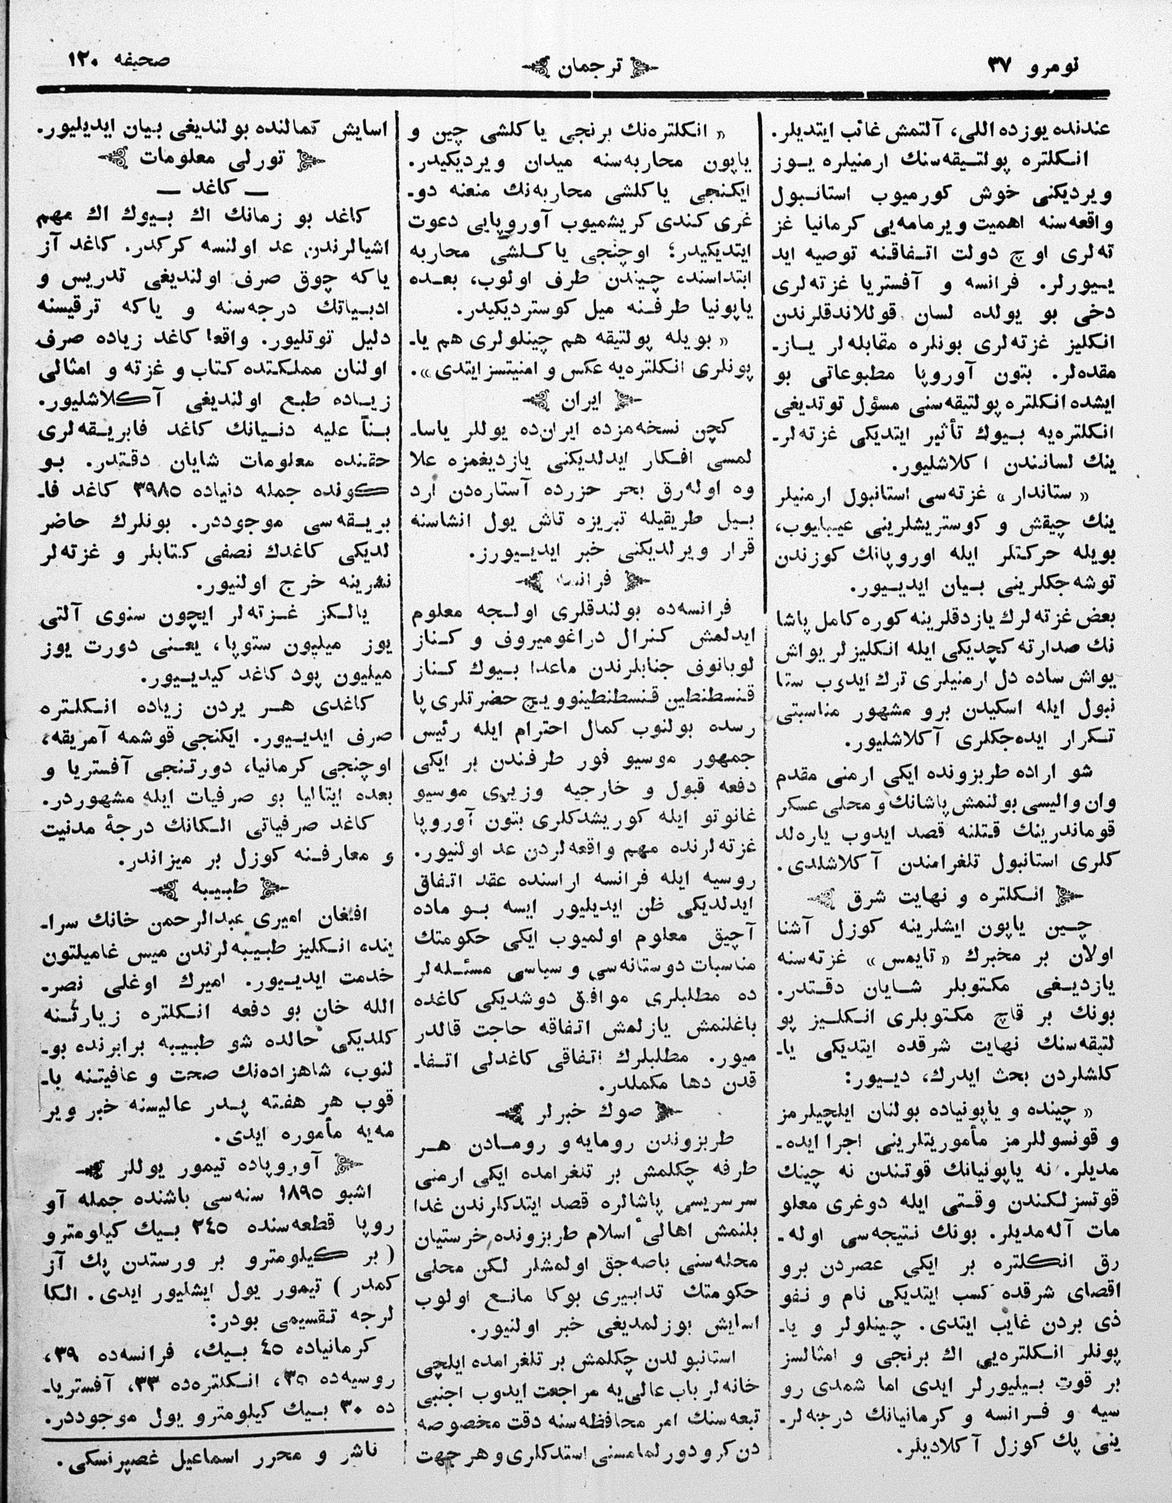 نومرو ٣٧
ترجمان
صحیفه ١٢٠
عندنده یوزده اللی، آلتمش غائب ایتدیلر.
انكلتره پولتیقه‌سنك ارمنیلره یوز
ویردیكنی خوش كورمیوب استانبول
واقعه‌سنه اهمیت ویرمامه‌یی كرمانیا غز
ته‌لری اوچ دولت اتفاقنه توصیه اید
یورلر. فرانسه و آفستریا غزته‌لری
دخی بو یولده لسان قوللاندقلرندن
انكلیز غزته‌لری بونلره مقابله‌لر یاز-
مقده‌لر. بتون آوروپا مطبوعاتی بو
ایشده انكلتره پولتیقه‌سنی مسؤل توتدیغی
انكلتره‌یه بیوك تأثیر ایتدیكی غزته‌لر-
ینك لسانندن اكلاشلیور.
« ستاندار » غزته‌سی استانبول ارمنیلر
ینك چیقش و كوستریشلرینی عیبایوب،
بویله حركتلر ایله اوروپانك كوزندن
توشه‌جكلرینی بیان ایدییور.
بعض غزته‌لرك یازدقلرینه كوره كامل پاشا
نك صدارته كچدیكی ایله انكلیزلر یواش
یواش ساده دل ارمنیلری ترك ایدوب ستا
نبول ایله اسكیدن برو مشهور مناسبتی
تكرار ایده‌جكلری آكلاشلیور.
شو اراده طربزونده ایكی ارمنی مقدم
وان والیسی بولنمش پاشانك و محلی عسكر
قوماندرینك قتلنه قصد ایدوب یاره‌لد
كلری استانبول تلغرامندن آكلاشلدی.
انكلتره و نهایت شرق
چین یاپون ایشلرینه كوزل آشنا
اولان بر مخبرك « تایمس » غزته‌سنه
یازدیغی مكتوبلر شایان دقتدر.
بونك بر قاچ مكتوبلری انكلیز پو
لتیقه‌سنك نهایت شرقده ایتدیكی یا-
كلشلردن بحث ایدرك، دییور:
« چینده و یاپونیاده بولنان ایلچیلرمز
و قونسوللرمز مأموریتلرینی اجرا ایده-
مدیلر. نه یاپونیانك قوتندن نه چینك
قوتسزلكندن وقتی ایله دوغری معلو
مات آله‌مدیلر. بونك نتیجه‌سی اوله-
رق انكلتره بر ایكی عصردن برو
اقصای شرقده كسب ایتدیكی نام و نفو
ذی بردن غایب ایتدی. چینلولر و یا-
پونلر انكلتره‌یی اك برنجی و امثالسز
بر قوت بیلیورلر ایدی اما شمدی رو
سیه و فرانسه و كرمانیانك درجه‌لر-
ینی پك كوزل آكلادیلر.
« انكلتره‌نك برنجی یاكلشی چین و
یاپون محاربه‌سنه میدان ویردیكیدر.
ایكنجی یاكلشی محاربه‌نك منعنه دو-
غری كندی كریشمیوب آوروپایی دعوت
ایتدیكیدر؛ اوچنجی یاكلشی محاربه
ابتداسنده چیندن طرف اولوب، بعده
یاپونیا طرفنه میل كوستردیكیدر.
« بویله پولتیقه هم چینلولری هم یا-
پونلری انكلتره‌یه عكس و امنیتسز ایتدی ».
ایران
كچن نسخه‌مزده ایران‌ده یوللر یاسا-
لمسی افكار ایدلدیكنی یازدیغمزه علا
وه اوله‌رق بحر حزرده آستاره‌دن ارد
بیل طریقیله تبریزه تاش یول انشاسنه
قرار ویرلدیكنی خبر ایدییورز.
فرانسه
فرانسه‌ده بولندقلری اولجه معلوم
ایدلمش كنرال دراغومیروف و كناز
لوبانوف جنابلرندن ماعدا بیوك كناز
قنسطنطین قنسطنطینوویچ حضرتلری پا
رسده بولنوب كمال احترام ایله رئیس
جمهور موسیو فور طرفندن بر ایكی
دفعه قبول و خارجیه وزیری موسیو
غانوتو ایله كوریشدكلری بتون آوروپا
غزته‌لرنده مهم واقعه‌لردن عد اولنیور.
روسیه ایله فرانسه اراسنده عقد اتفاق
ایدلدیكی ظن ایدیلیور ایسه بو ماده
آچیق معلوم اولمیوب ایكی حكومتك
مناسبات دوستانه‌سی و سیاسی مسئله‌لر
ده مطلبلری موافق دوشدیكی كاغده
باغلنمش یازلمش اتفاقه حاجت قالدر
میور. مطلبلرك اتفاقی كاغدلی اتفا-
قدن دها مكملدر.
صوك خبرلر
طربزوندن رومایه و رومادن هر
طرفه چكلمش بر تلغرامده ایكی ارمنی
سرسریسی پاشالره قصد ایتدكلرندن غدا
بلنمش اهالی اسلام طربزونده خرستیان
محله‌سنی باصه‌جق اولمشلر لكن محلی
حكومتك تدابیری بوكا مانع اولوب
اسایش بوزلمدیغی خبر اولنیور.
استانبولدن چكلمش بر تلغرامده ایلچی
خانه‌لر باب عالی‌یه مراجعت ایدوب اجنبی
تبعه‌سنك امر محافظه‌سنه دقت مخصوصه
دن كرو دورلمامسنی استدكلری و هر جهت
اسایش كمالنده بولندیغی بیان ایدیلیور.
تورلی معلومات
— كاغد —
كاغد بو زمانك اك بیوك اك مهم
اشیالرندن عد اولنسه كركدر. كاغد آز
یاكه چوق صرف اولندیغی تدریس و
ادبیاتك درجه‌سنه و یاكه ترقیسنه
دلیل توتلیور. واقعا كاغد زیاده صرف
اولنان مملكتده كتاب و غزته و امثالی
زیاده طبع اولندیغی آكلاشلیور.
بناً علیه دنیانك كاغد فابریقه‌لری
حقنده معلومات شایان دقتدر. بو
كونده جمله دنیاده ٣٩٨٥ كاغد فا-
بریقه‌سی موجوددر. بونلرك حاضر
لدیكی كاغدك نصفی كتابلر و غزته‌لر
نشرینه خرج اولنیور.
یالكز غزته‌لر ایچون سنوی آلتی
یوز میلیون ستوپا، یعنی دورت یوز
میلیون پود كاغد كیدییور.
كاغدی هر یردن زیاده انكلتره
صرف ایدییور. ایكنجی قوشمه آمریقه،
اوچنجی كرمانیا، دورتنجی آفستریا و
بعده ایتالیا بو صرفیات ایله مشهوردر.
كاغد صرفیاتی الكانك درجهٔ مدنیت
و معارفنه كوزل بر میزاندر.
طبیبه
افغان امیری عبدالرحمن خانك سرا-
ینده انكلیز طبیبه‌لرندن میس غامیلتون
خدمت ایدییور. امیرك اوغلی نصر-
الله خان بو دفعه انكلتره زیارتنه
كلدیكی حالده شو طبیبه برابرنده بو-
لنوب، شاهزاده‌نك صحت و عافیتنه با-
قوب هر هفته پدر عالیسنه خبر ویر
مه‌یه مأموره ایدی.
آوروپاده تیمور یوللر
اشبو ١٨٩٥ سنه‌سی باشنده جمله آو
روپا قطعه‌سنده ٢٤٥ بیك كیلومترو
( بر كیلومترو بر ورستدن پك آز
كمدر ) تیمور یول ایشلیور ایدی. الكا
لرجه تقسیمی بودر:
كرمانیاده ٤٥ بیك، فرانسه‌ده ٣٩،
روسیه‌ده ٣٥، انكلتره‌ده ٣٣، آفستریا-
ده ٣٠ بیك كیلومترو یول موجوددر.
ناشر و محرر اسماعیل غصپرنسكی.